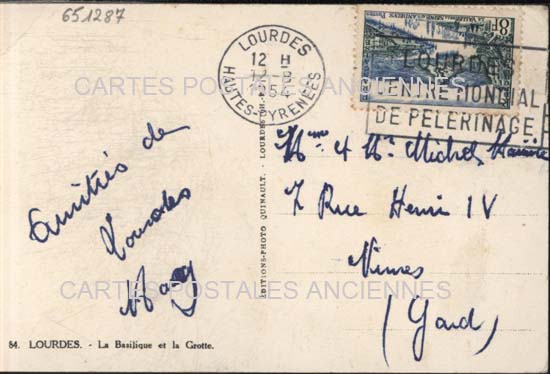 651287
LOURDES
12 H
1954
HAUTES-PYRENEES
8F
LOURDES
CENTRE MONDIAL
DE PELERINAGE
CARTES POSTALES ANCIENNES
Amitiés de
Lourdes
Mme & Mr Michel
7 Rue Henri IV
Nimes
(Gard)
EDITIONS-PHOTO QUINAULT. - LOURDES
CARTES POSTALES ANCIENNES
84. LOURDES. - La Basilique et la Grotte.